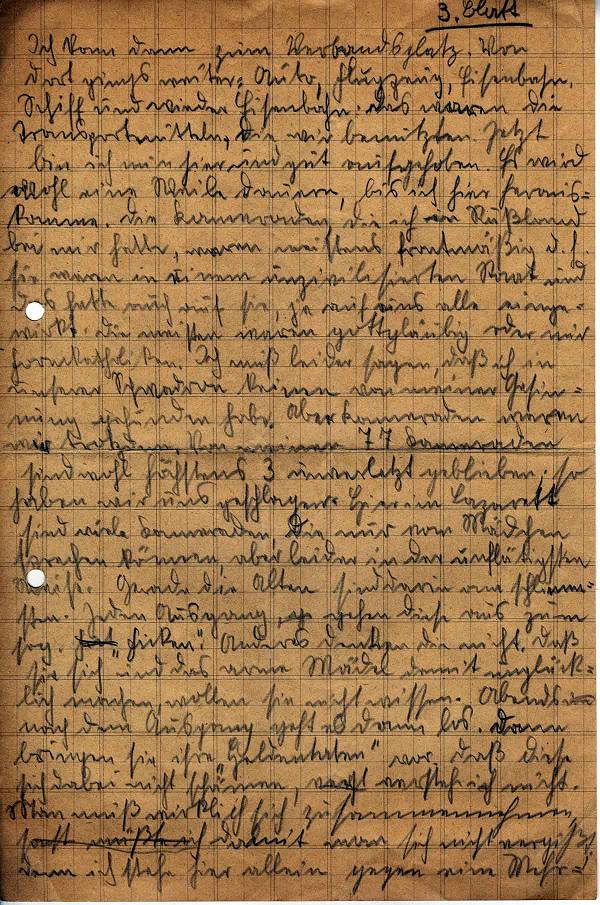 3. Blatt
Ich kam dann zum Verbandsplatz. Von
dort gings weiter: Auto, Flugzeug, Eisenbahn,
Schiff und wieder Eisenbahn. das waren die
Transportmitteln, die wir benützten. Jetzt
bin ich nun hier und gut aufgehoben. Es wird
wohl eine Weile dauern, bis ich hier heraus-
komme. die Kameraden, die ich in Rußland
bei mir hatte, waren meistens frontmäßig d.h.
sie waren in einem unzivilisierten Staat und
das hatte auch auf sie, ja auf uns alle einge-
wirkt. die meisten waren gottgläubig oder nur
Ich muß leider sagen, daß ich in
unserer Schwadron keinen von meiner Gesin-
nung gefunden habe. Aber Kameraden waren
wir trotzdem. Von meinen 77 Kameraden
sind wohl höchstens 3 unverletzt geblieben. so
haben wir uns geschlagen. Hier im Lazarett
sind viele Kameraden, die nur vom Mädchen
sprechen können, aber leider in der unflätigsten
Weise. Gerade die Alten sind darin am schlimm-
sten. Jeden Ausgang, gehen diese aus zum
sog. „ficken“. Anders denken die nicht. daß
sie sich und das arme Mädel damit unglück-
lich machen, wollen sie nicht wissen. Abends
nach dem Ausgang geht es dann los. dann
bringen sie ihre „Heldentaten“ vor. daß diese
sich dabei nicht schämen, verstehe ich nicht.
Man muß wirklich sich zusammennehmen,
sonst müßte ich damit man sich nicht vergißt,
denn ich stehe hier allein gegen eine Mehr-